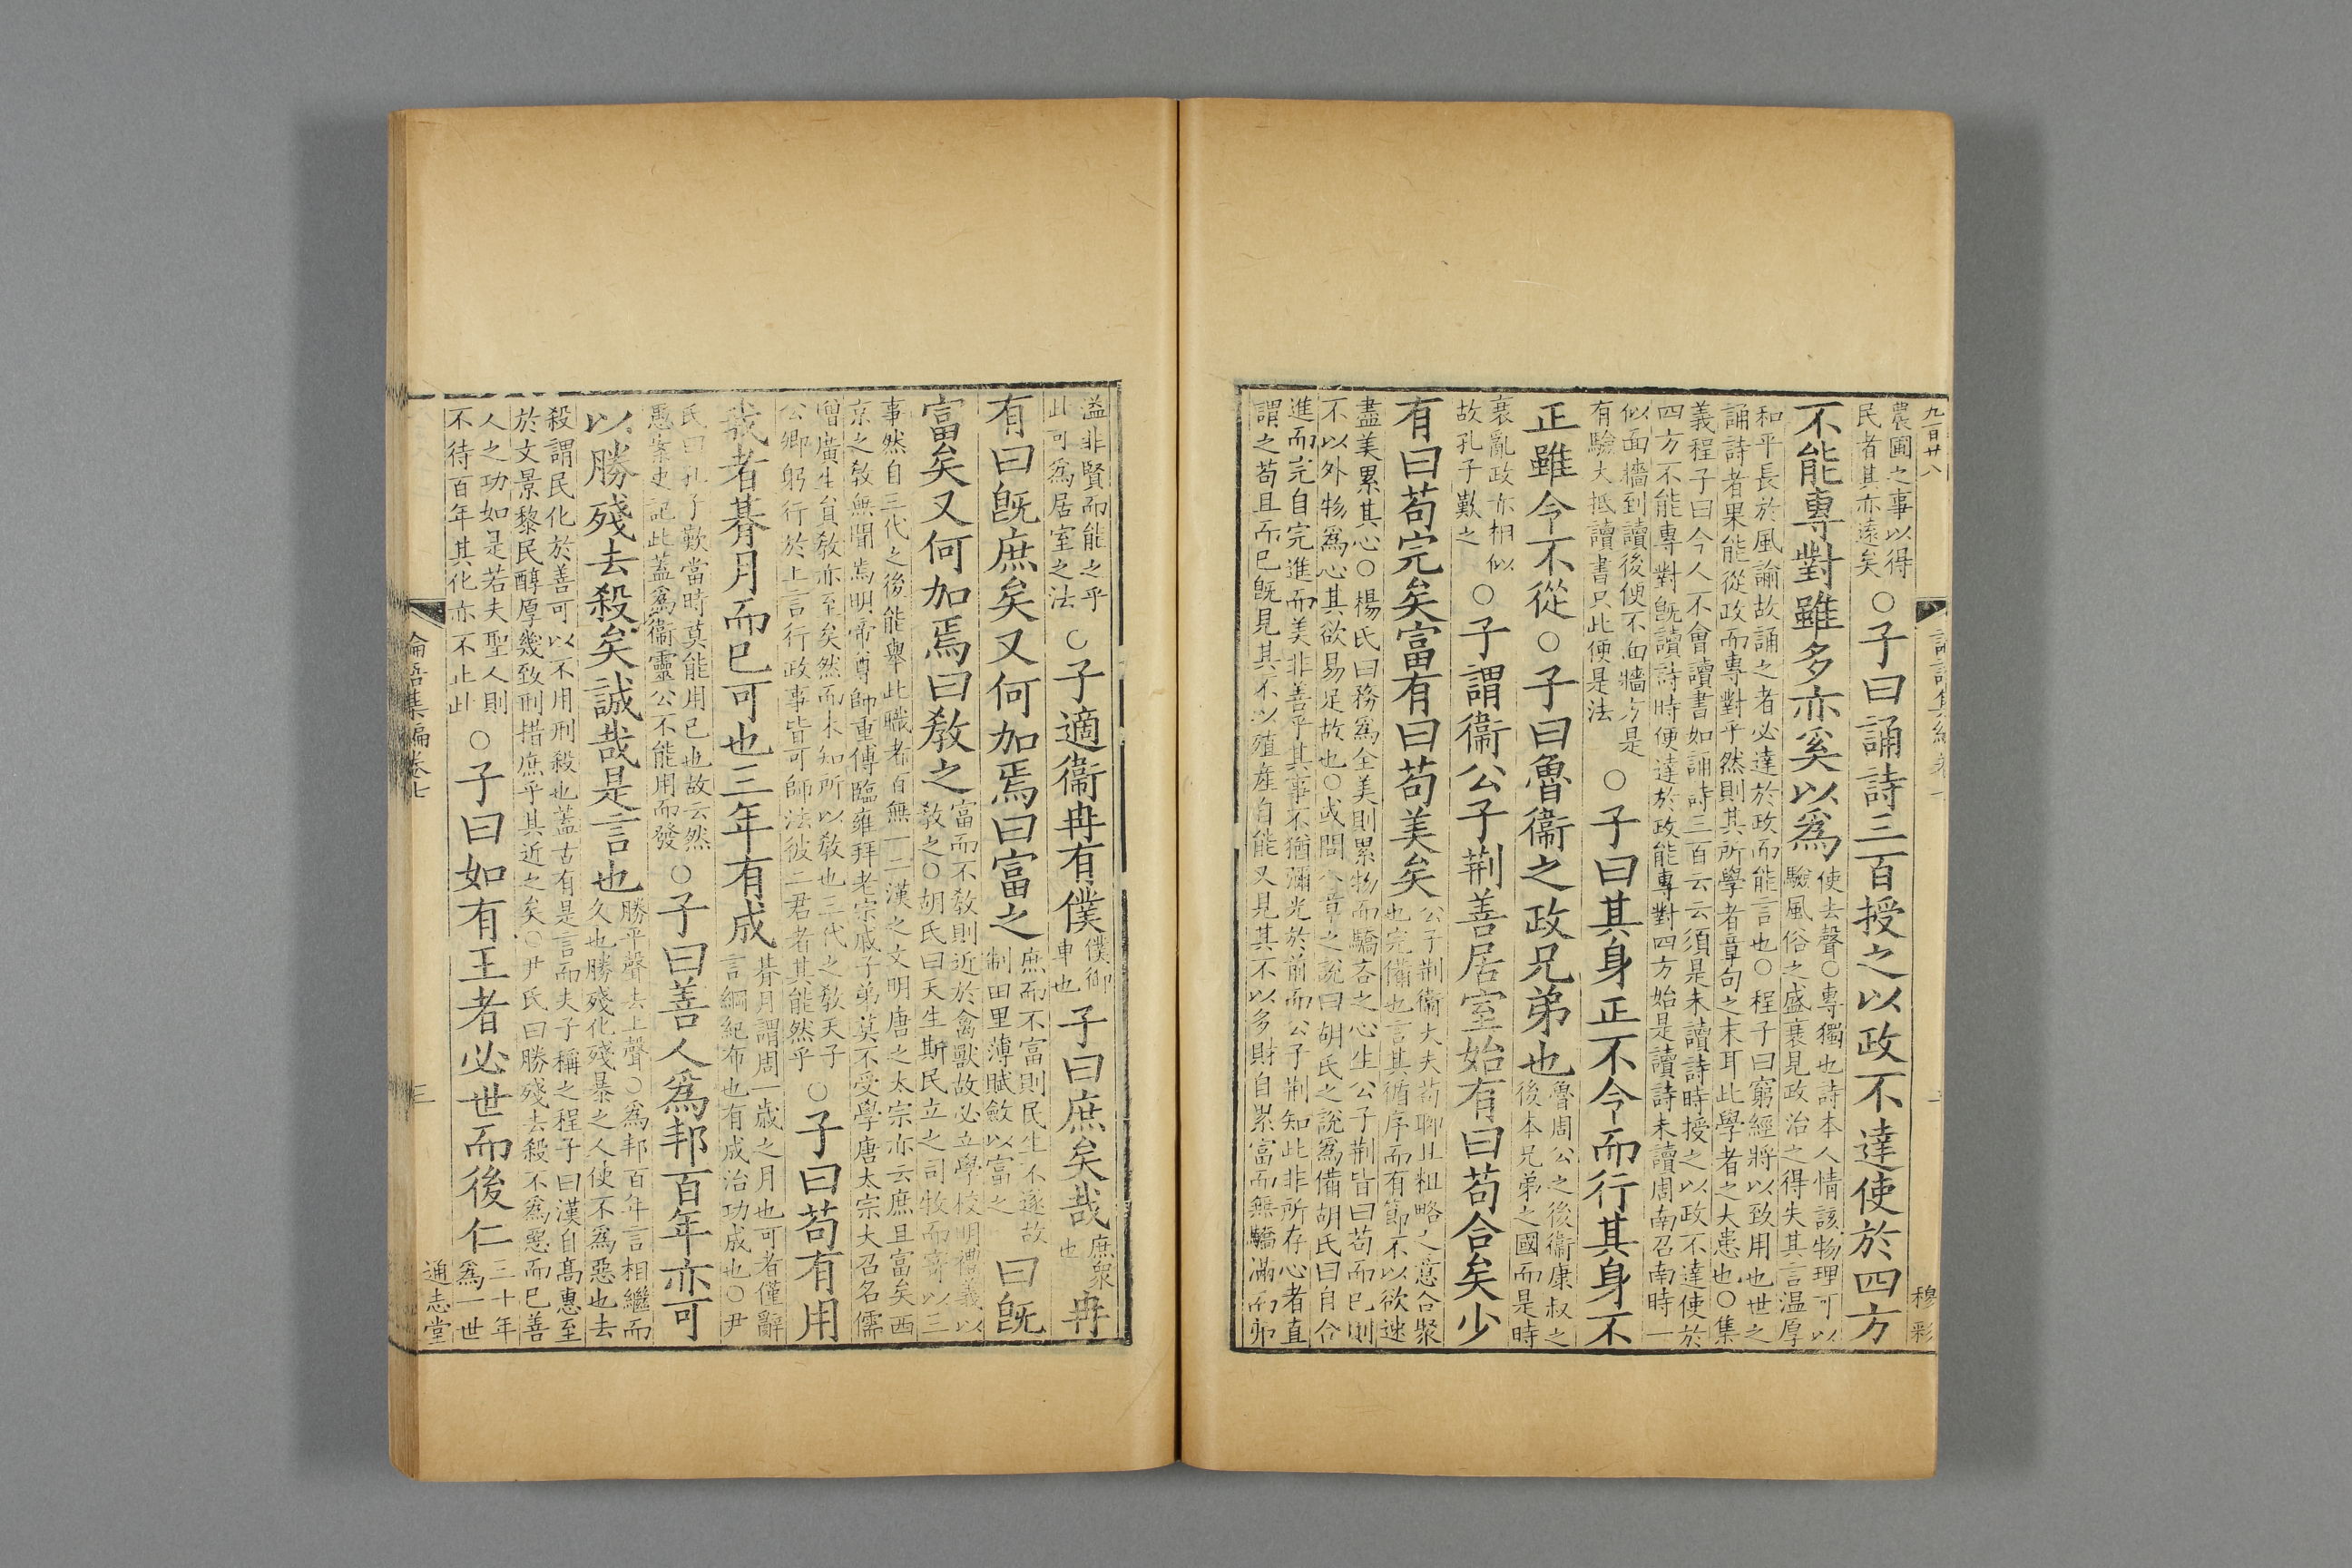 九百廿八
穆彩
農圃之事以得
民者其亦遠矣
○子曰誦詩三百授之以政不達使於四方
不能專對雖多亦奚以爲
使去聲○專獨也詩本人情該物理可以
驗風俗之盛衰見政治之得失其言温厚
和平長於風諭故誦之者必達於政而能言也○程子曰窮經將以致用也世之
誦詩者果能從政而專對乎然則其所學者章句之末耳此學者之大患也○集
義程子曰今人不會讀書如誦詩三百云云須是未讀詩時授之以政不達使於
四方不能專對旣讀詩時便達於政能專對四方始是讀詩未讀周南召南時一
似面牆到讀後便不面牆方是
有驗大抵讀書只此便是法
○子曰其身正不令而行其身不
正雖令不從○子曰魯衞之政兄弟也
魯周公之後衞康叔之
後本兄弟之國而是時
衰亂政亦相似
故孔子歎之
○子謂衞公子荆善居室始有曰苟合矣少
有曰苟完矣富有曰苟美矣
公子荆衞大夫苟聊且粗略之意合聚
也完備也言其循序而有節不以欲速
盡美累其心○楊氏曰務爲全美則累物而驕吝之心生公子荆皆曰苟而已則
不以外物爲心其欲易足故也○或問八章之說曰胡氏之說爲備胡氏曰自合
進而完自完進而美非善乎其事不猶彌光於前而公子荆知此非所存心者直
謂之苟且而已旣見其不以殖産自能又見其不以多財自累富而無驕滿而
溢非賢而能之乎
此可爲居室之法
○子適衞冉有僕
僕御
車也
子曰庶矣哉
庶衆
也
冉
有曰旣庶矣又何加焉曰富之
庶而不富則民生不遂故
制田里薄賦斂以富之
曰旣
富矣又何加焉曰敎之
富而不敎則近於禽獸故必立學校明禮義以
敎之○胡氏曰天生斯民立之司牧而寄以三
事然自三代之後能舉此職者百無一二漢之文明唐之太宗亦云庶且富矣西
京之敎無聞焉明帝尊師重傅臨雍拜老宗戚子弟莫不受學唐太宗大召名儒
增廣生員敎亦至矣然而未知所以敎也三代之敎天子
公卿躬行於上言行政事皆可師法彼二君者其能然乎
○子曰苟有用
我者朞月而已可也三年有成
朞月謂周一歲之月也可者僅辭
言綱紀布也有成治功成也○尹
氏曰孔子歎當時莫能用已也故云然
愚案史記此蓋爲衞靈公不能用而發
○子曰善人爲邦百年亦可
以勝殘去殺矣誠哉是言也
勝平聲去上聲○爲邦百年言相繼而
久也勝殘化殘暴之人使不爲惡也去
殺謂民化於善可以不用刑殺也蓋古有是言而夫子稱之程子曰漢自髙惠至
於文景黎民醇厚幾致刑措庶乎其近之矣○尹氏曰勝殘去殺不爲惡而已善
人之功如是若夫聖人則
不待百年其化亦不止此
○子曰如有王者必世而後仁
三十年
爲一世
論語集編卷七
三
通志堂